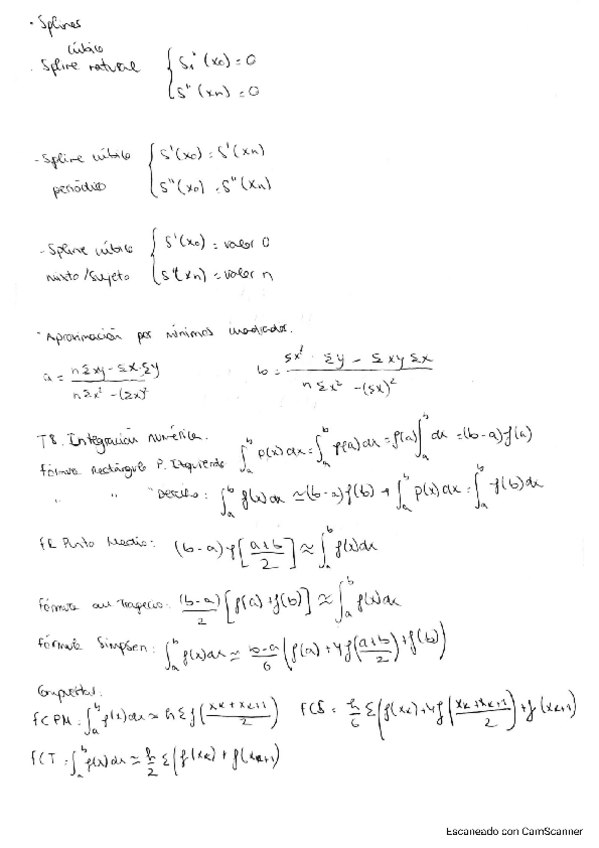 · Splines
cúbico
· Spline natural { S''(x0) = 0
S''(xn) = 0
- Spline cúbico { S'(x0) = S'(xn)
periódico S''(x0) = S''(xn)
- Spline cúbico { S'(x0) = valor 0
mixto/sujeto S'(xn) = valor n
· Aproximación por mínimos cuadrados.
a = (nΣxy - Σx·Σy) / (nΣx² - (Σx)²) b = (Σx²·Σy - Σxy Σx) / (nΣx² - (Σx)²)
T8. Integración numérica.
fórmula Rectángulo P. Izquierdo ∫_a^b p(x)dx = ∫_a^b f(a)dx = f(a)∫_a^b dx = (b-a)f(a)
" " " Derecho: ∫_a^b f(x)dx ≃ (b-a)f(b) → ∫_a^b p(x)dx = ∫_a^b f(b)dx
FR Punto Medio: (b-a)f[(a+b)/2] ≈ ∫_a^b f(x)dx
fórmula del Trapecio: (b-a)/2 [f(a)+f(b)] ≈ ∫_a^b f(x)dx
fórmula Simpson: ∫_a^b f(x)dx ≃ (b-a)/6 (f(a)+4f((a+b)/2)+f(b))
Compuestas:
FCPM: ∫_a^b f(x)dx ≃ h Σ f((xk + xk+1)/2) FCS = h/6 Σ(f(xk)+4f((xk+xk+1)/2)+f(xk+1)
FCT: ∫_a^b f(x)dx ≃ h/2 Σ(f(xk)+f(xk+1)
Escaneado con CamScanner